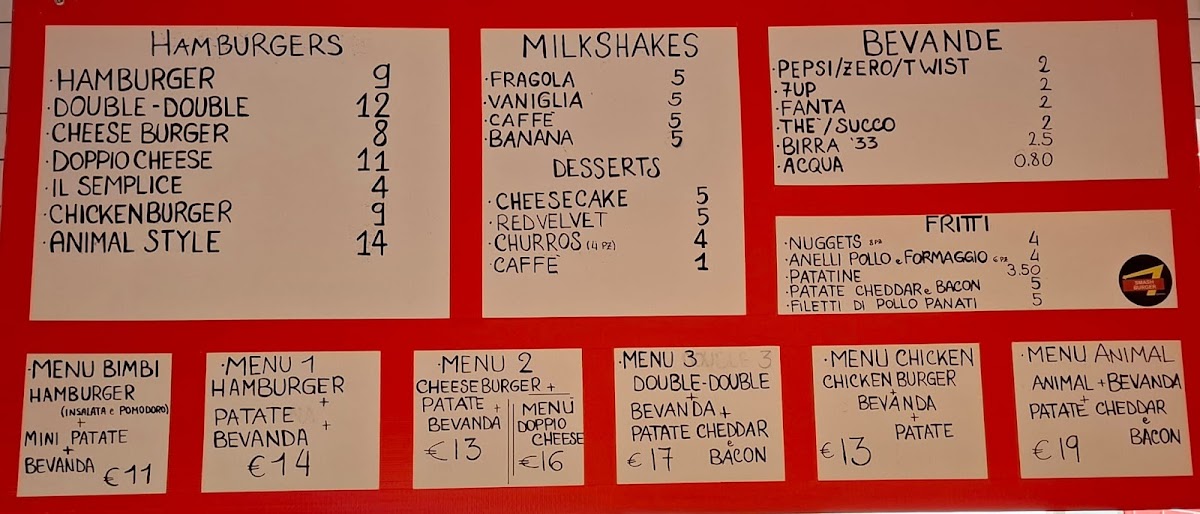 HAMBURGERS
·HAMBURGER 9
·DOUBLE-DOUBLE 12
·CHEESE BURGER 8
·DOPPIO CHEESE 11
·IL SEMPLICE 4
·CHICKENBURGER 9
·ANIMAL STYLE 14
MILKSHAKES
·FRAGOLA 5
·VANIGLIA 5
·CAFFÈ 5
·BANANA 5
DESSERTS
·CHEESECAKE 5
·REDVELVET 5
·CHURROS (4 PZ) 4
·CAFFÈ 1
BEVANDE
·PEPSI/ZERO/TWIST 2
·7UP 2
·FANTA 2
·THE'/SUCCO 2
·BIRRA '33 2.5
·ACQUA 0.80
FRITTI
·NUGGETS 8 PZ 4
·ANELLI POLLO e FORMAGGIO 6 PZ 4
·PATATINE 3.50
·PATATE CHEDDAR e BACON 5
·FILETTI DI POLLO PANATI 5
SMASH
BURGER
·MENU BIMBI
HAMBURGER
(INSALATA e POMODORO)
+
MINI PATATE
+
BEVANDA
€11
·MENU 1
HAMBURGER
+
PATATE
+
BEVANDA
€14
·MENU 2
CHEESEBURGER +
PATATE +
BEVANDA
€13
MENÙ
DOPPIO
CHEESE
€16
·MENU 3
DOUBLE-DOUBLE
+
BEVANDA +
PATATE CHEDDAR
e
BACON
€17
·MENU CHICKEN
CHICKEN BURGER
+
BEVANDA
+
PATATE
€13
·MENU ANIMAL
ANIMAL + BEVANDA
+
PATATE CHEDDAR
e
BACON
€19